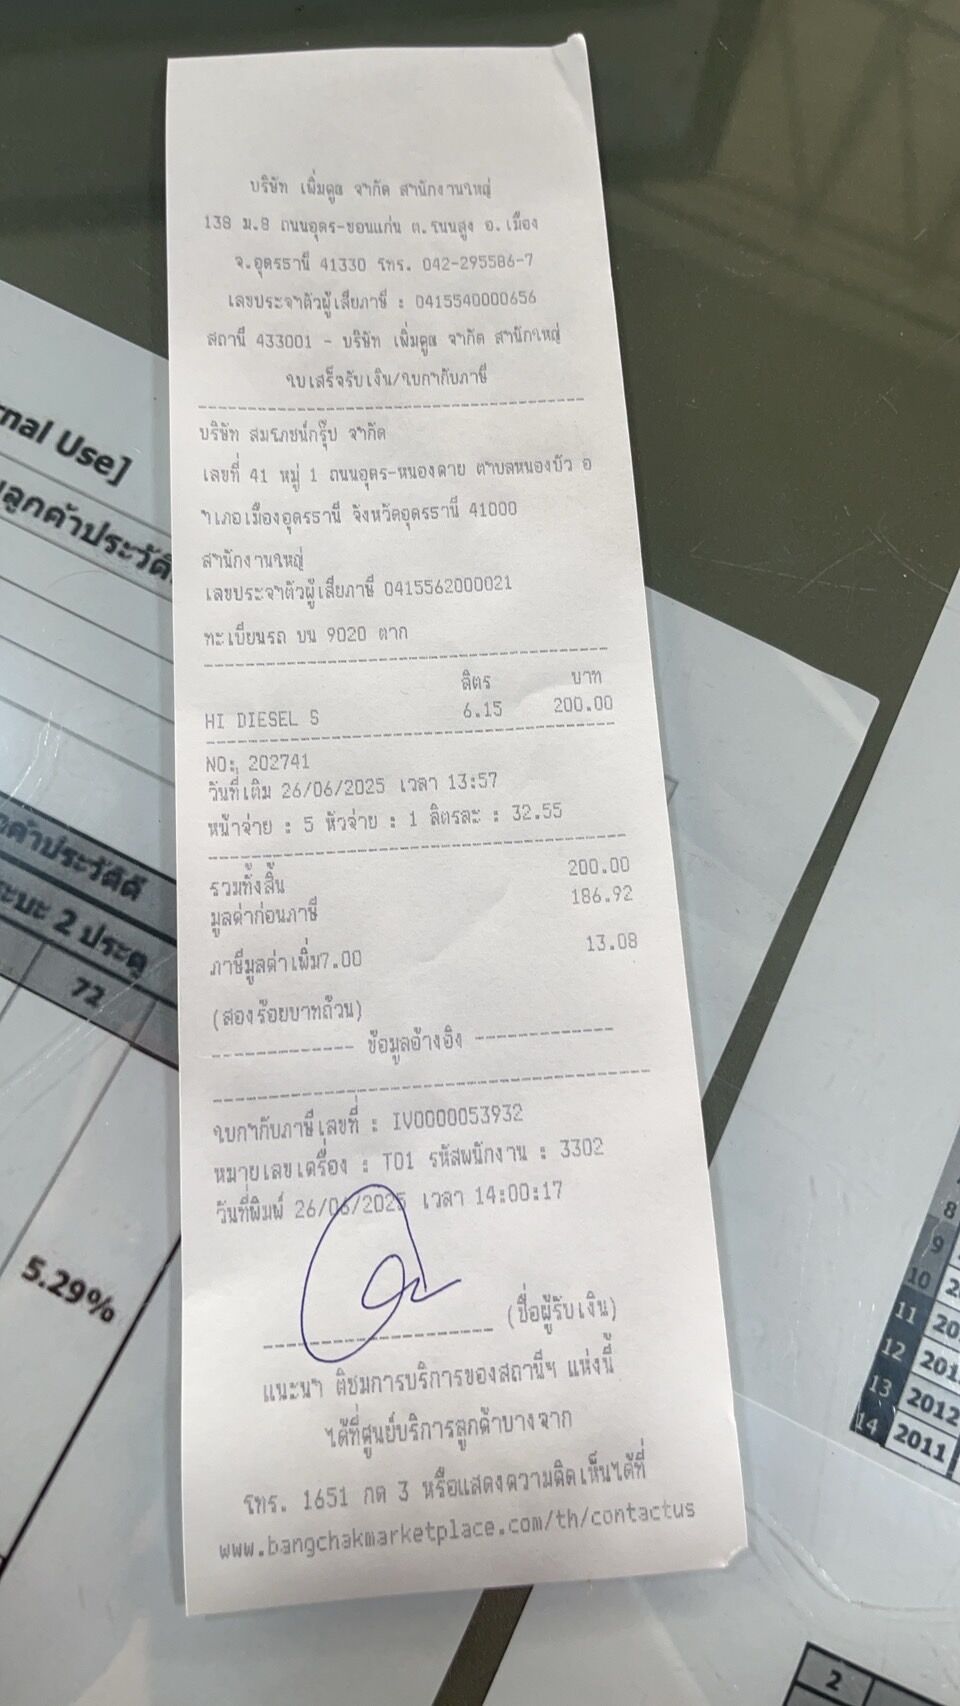 บริษัท เพิ่มคูณ จำกัด สำนักงานใหญ่
138 ม.8 ถนนอุดร-ขอนแก่น ต.โนนสูง อ.เมือง
จ.อุดรธานี 41330 โทร. 042-295586-7
เลขประจำตัวผู้เสียภาษี : 0415540000656
สถานี 433001 - บริษัท เพิ่มคูณ จำกัด สำนักใหญ่
ใบเสร็จรับเงิน/ใบกำกับภาษี
บริษัท สมโภชน์กรุ๊ป จำกัด
เลขที่ 41 หมู่ 1 ถนนอุดร-หนองคาย ตำบลหนองบัว อ
ำเภอเมืองอุดรธานี จังหวัดอุดรธานี 41000
สำนักงานใหญ่
เลขประจำตัวผู้เสียภาษี 0415562000021
ทะเบียนรถ บน 9020 ตาก
ลิตร บาท
HI DIESEL S 6.15 200.00
NO: 202741
วันที่เติม 26/06/2025 เวลา 13:57
หน้าจ่าย : 5 หัวจ่าย : 1 ลิตรละ : 32.55
รวมทั้งสิ้น 200.00
มูลค่าก่อนภาษี 186.92
ภาษีมูลค่าเพิ่ม7.00 13.08
(สองร้อยบาทถ้วน)
------------- ข้อมูลอ้างอิง -------------
ใบกำกับภาษีเลขที่ : IV0000053932
หมายเลขเครื่อง : T01 รหัสพนักงาน : 3302
วันที่พิมพ์ 26/06/2025 เวลา 14:00:17
(ชื่อผู้รับเงิน)
แนะนำ ติชมการบริการของสถานีฯ แห่งนี้
ได้ที่ศูนย์บริการลูกค้าบางจาก
โทร. 1651 กด 3 หรือแสดงความคิดเห็นได้ที่
www.bangchakmarketplace.com/th/contactus
rnal Use]
ลูกค้าประวัติ
ค้าประวัติดี
ะบะ 2 ประตู
72
5.29%
8
9
10
11
12
13 2012
14 2011
2